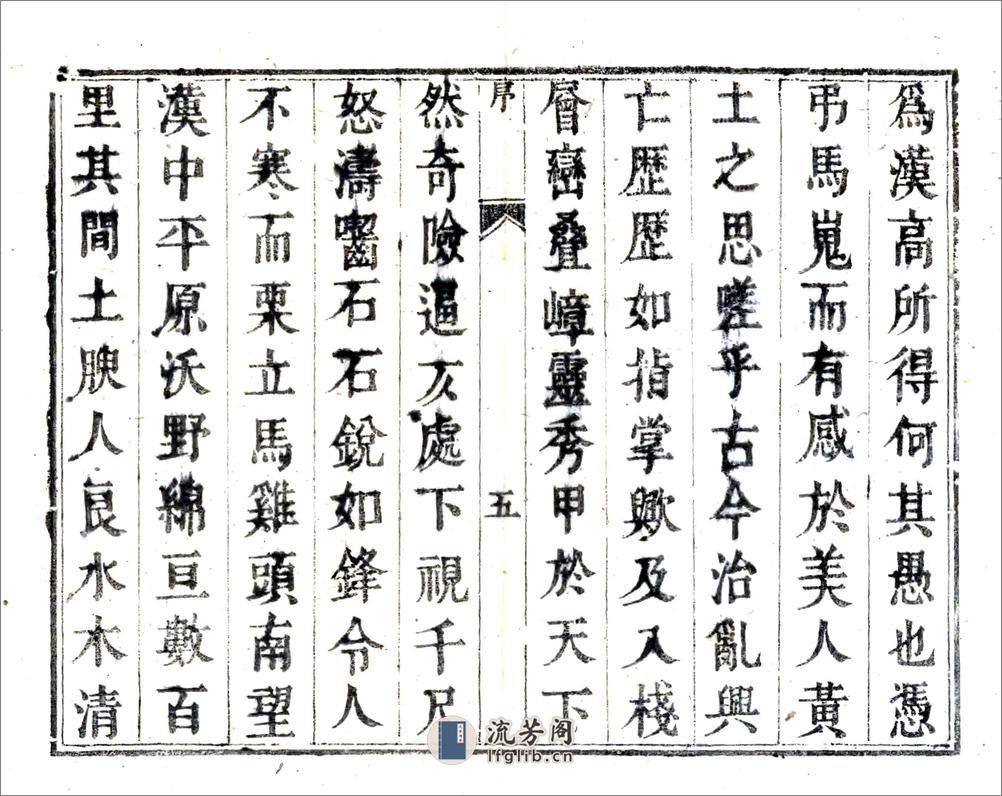 爲漢高所得何其愚也憑
弔馬嵬而有感於美人黃
土之思嗟乎古今治亂興
亡歷歷如指掌歟及入棧
層巒疊嶂靈秀甲於天下
序
五
然奇險逼仄處下視千尺
怒濤齧石石銳如鋒令人
不寒而栗立馬雞頭南望
漢中平原沃野綿亘數百
里其間土腴人良水木清
流芳阁
lfglib.cn